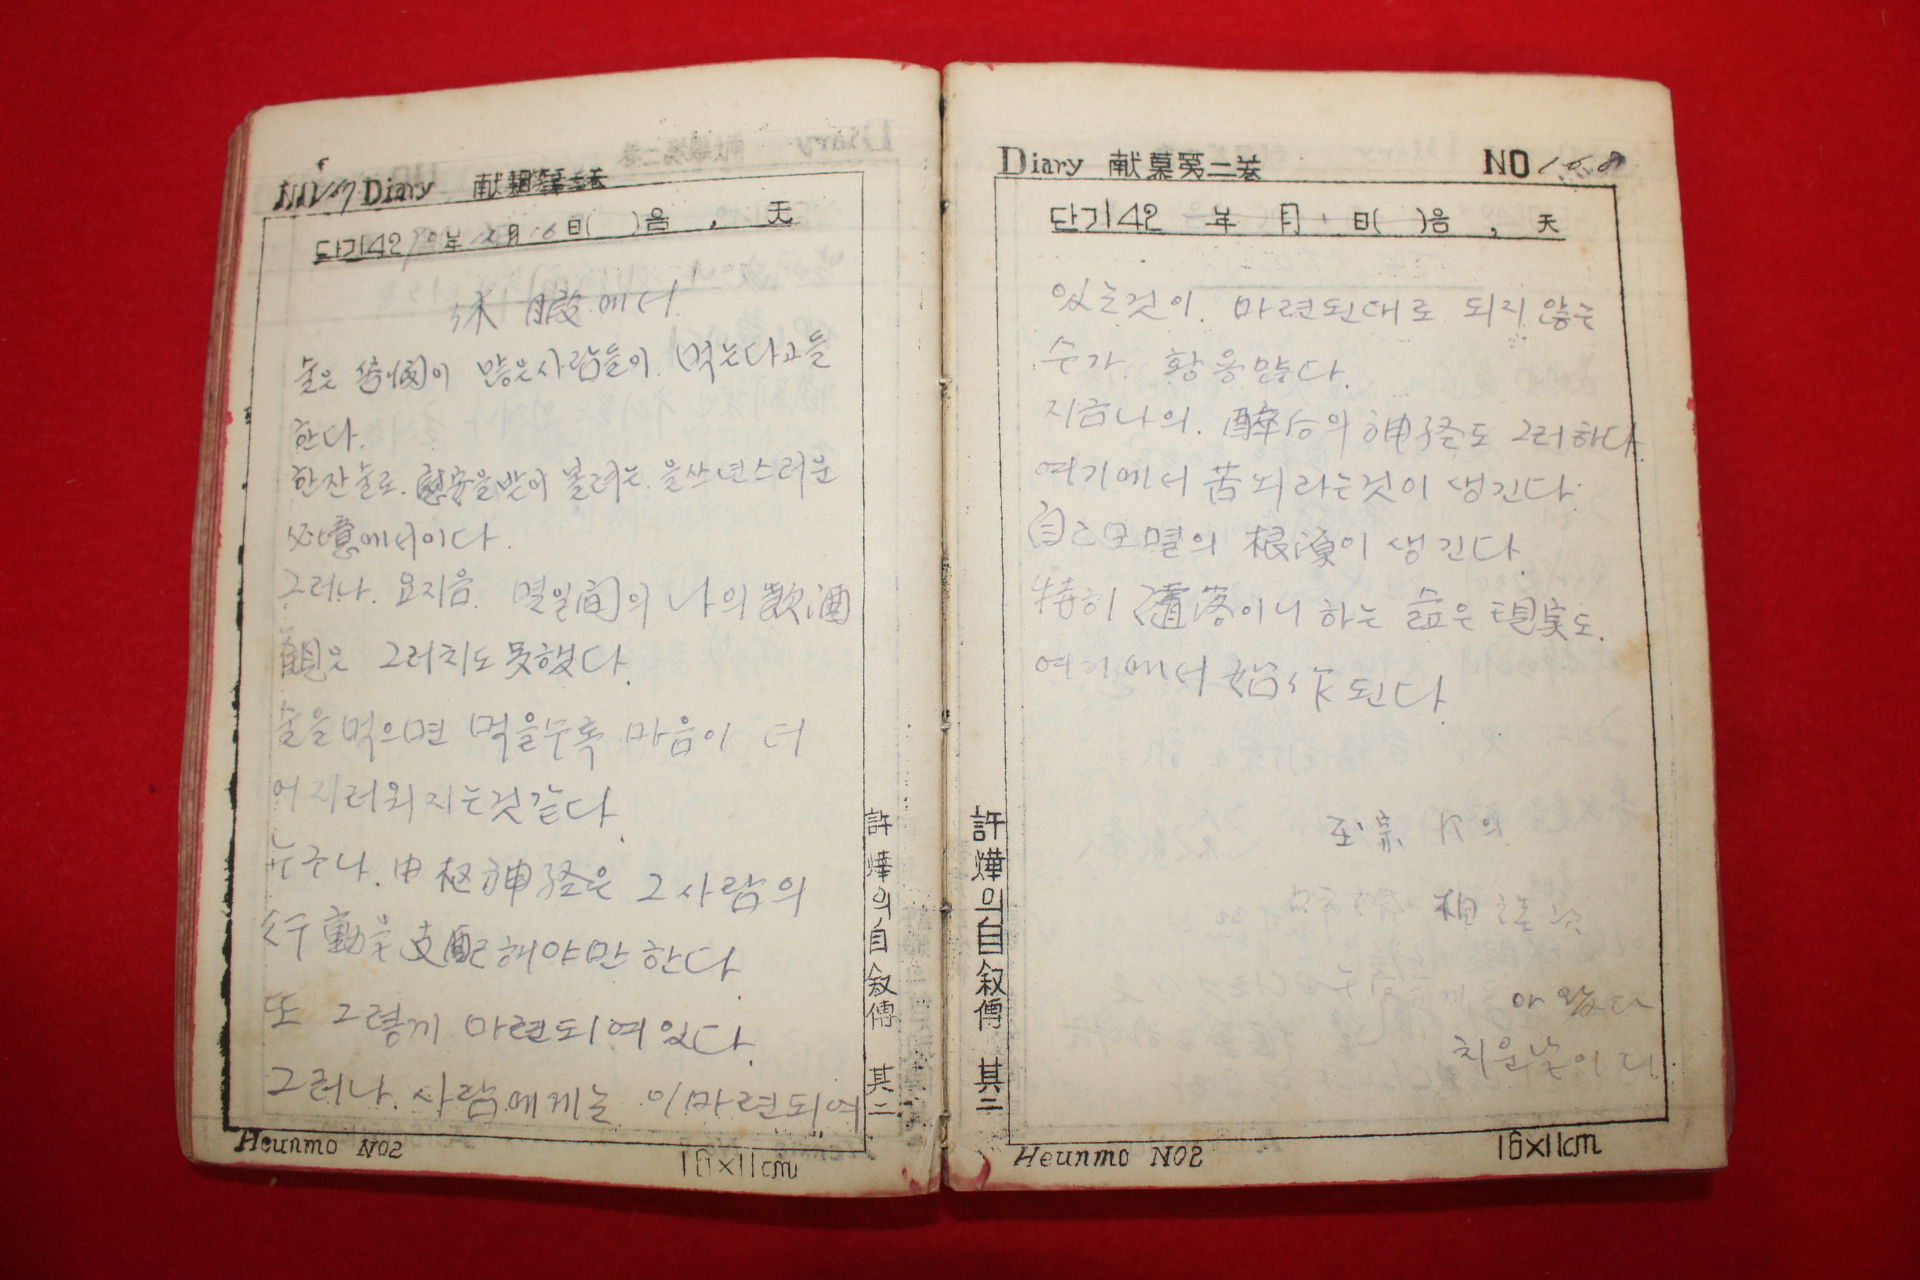 Diary 献
단기42 0年 2月 16日( )음 , 天
休暇에서
술은 이 많은사람들이 먹는다고들
한다.
한잔술로. 慰安을받어 볼려는. 을쓰년스러운
必意에서이다.
그러나. 요지음. 몇일间의 나의 飲酒
観은 그러치도못했다.
술을먹으면 먹을수록 마음이 더
어지러워지는것같다.
누구나. 中枢神経은 그사람의
行動을 支配해야만 한다
또 그렇게 마련되여있다.
그러나. 사람에게는 이마련되여
許燁의自叙傳 其二
Heunmo NO2
16×11cm
Diary 献菓第二巻
NO 1.5.8
단기42 年 月 日( )음 , 天
있는것이. 마련된대로 되지 않는
수가. 황용많다.
지금나의. 酔후의 神経도 그러하다
여기에서 苦뇌라는것이 생긴다.
自己모멸의 根源이 생긴다.
特히 落이니 하는 슲은 現実도.
여기에서 始作된다.
宗 의
相
아 왔다
치운날이다
許燁의自叙傳 其二
Heunmo NO2
16×11cm